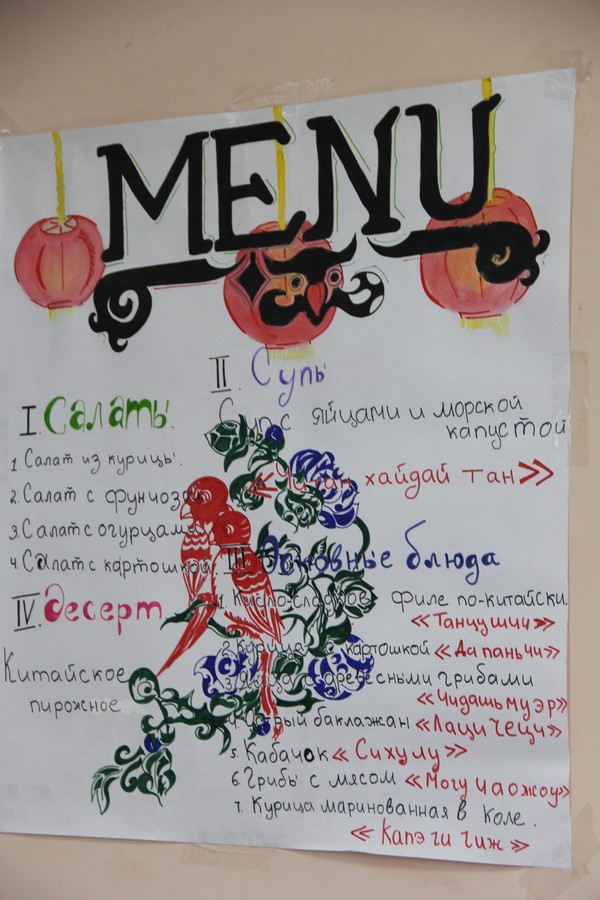 MENU
I. Салаты.
1. Салат из курицы.
2. Салат с фунчозой
3. Салат с огурцами
4. Салат с картошкой
II. Супы
Суп с яйцами и морской
капустой
хайдай тан»
III Основные блюда
1. Кисло-сладкое филе по-китайски.
«Танчушичи»
2. Курица с картошкой «Да паньчи»
древесными грибами
«Чидашь му эр»
4. Острый баклажан «Лаци Чецзи»
5. Кабачок «Сихулу»
6. Грибы с мясом «Могу чаожоу»
7. Курица маринованная в коле.
«Капэ ги чиж»
IV. Десерт
Китайское
пирожное